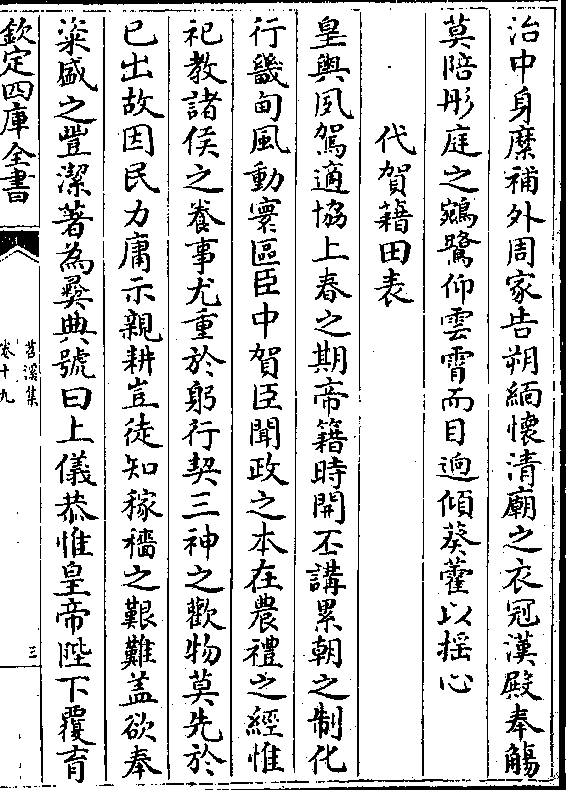 治中身縻補外周家告朔緬懷清廟之衣冠漢殿奉觴
莫陪彤庭之鵷鷺仰雲霄而目逈傾葵藿以揺心
代賀籍田表
皇輿夙駕適協上春之期帝籍時開丕講累朝之制化
行畿甸風動寰區臣中賀臣聞政之本在農禮之經惟
祀教諸侯之養事尤重於躬行契三神之歡物莫先於
已出故因民力庸示親耕豈徒知稼穡之艱難盖欲奉
粢盛之豐潔著為彞典號曰上儀恭惟皇帝陛下覆育
欽定四庫全書
苕溪集
卷十九
三